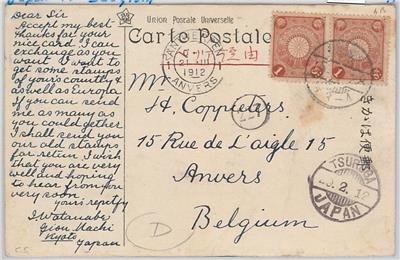 Union Postale Universelle
Carte Postale
Dear Sir
Accept my best
thanks for your
nice card. I can
exchange as you
want. I want to
get some stamps
of yours country &
as well as Europa
If you can send
me as many as
you could gether
I shall send you
our old stamps
for return. I wish
that you are very
well and hoping
to hear from you
very soon.
yours reply
I. Watanabe
Gion Machi
Kyoto
Japan
ANTWERPEN
1912
ANVERS
由
1 1
Mr
H. Coppieters
15 Rue de L'aigle 15
Anvers
Belgium
きかは便郵
227
TSURUGA
2.12
JAPAN
D